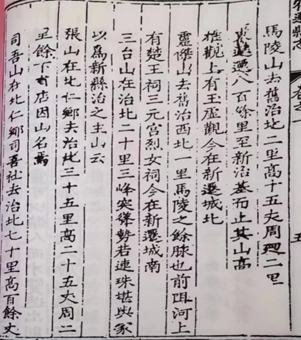 馬陵山去舊治北二里高十五丈周廻二里
東北邐迤八百餘里至新治基而止其山高
雄觀上有玉虛觀今在新遷城北
靈傑山去舊治西北一里馬陵之餘脉也前瞰河上
有楚王祠三元宮烈女祠今在新遷城南
三台山在治北二十里三峰突律勢若連珠堪輿家
以為新縣治之主山云
張山在北仁鄉去治北三十五里高二十五丈周二
里餘下有店因山名焉
司吾山在北仁鄉司吾社去治北七十里高百餘丈